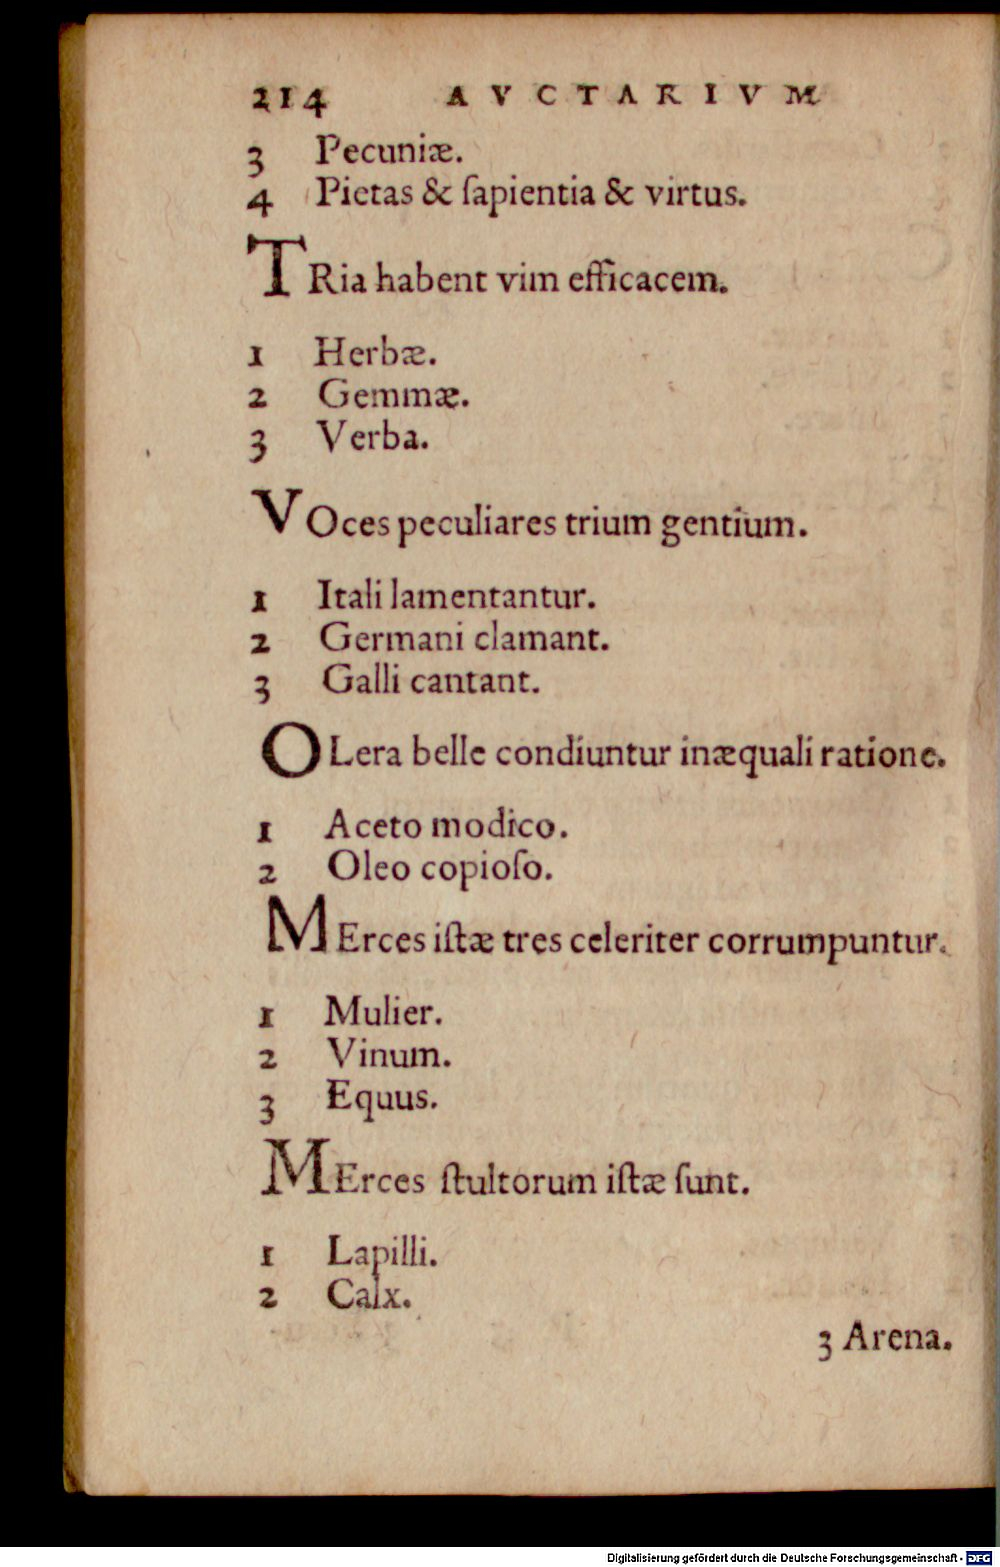 214 AVCTARIVM
3 Pecuniæ.
4 Pietas & ſapientia & virtus.
TRia habent vim efficacem.
1 Herbæ.
2 Gemmæ.
3 Verba.
VOces peculiares trium gentium.
1 Itali lamentantur.
2 Germani clamant.
3 Galli cantant.
OLera belle condiuntur inæquali ratione.
1 Aceto modico.
2 Oleo copioſo.
MErces iſtæ tres celeriter corrumpuntur.
1 Mulier.
2 Vinum.
3 Equus.
MErces ſtultorum iſtæ ſunt.
1 Lapilli.
2 Calx.
3 Arena.
Digitalisierung gefördert durch die Deutsche Forschungsgemeinschaft - DFG